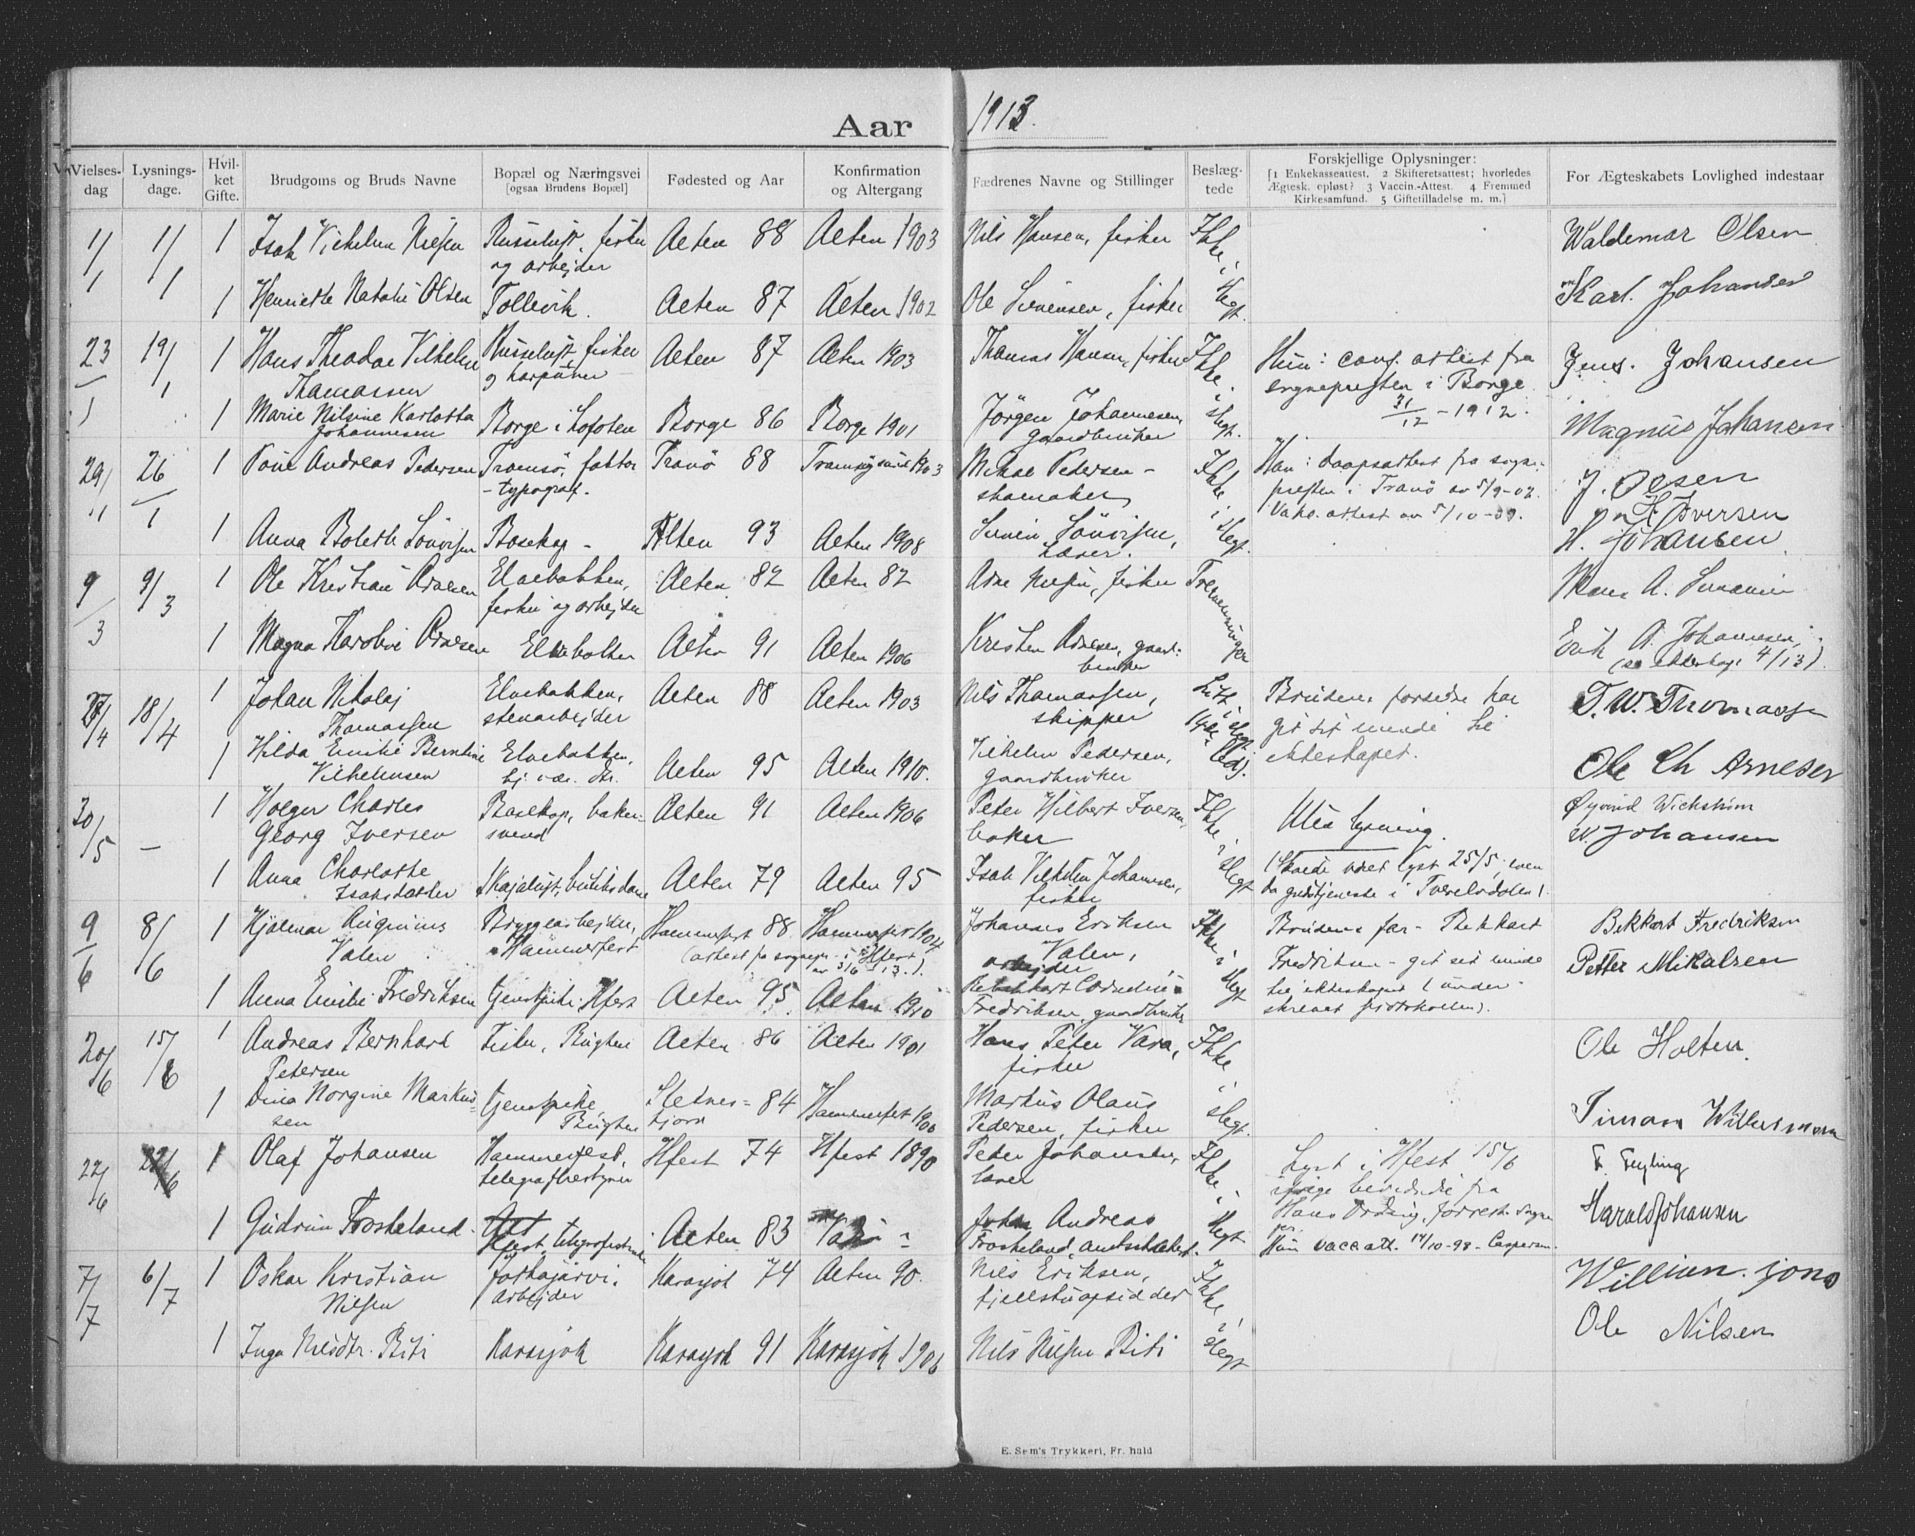 Aar 1913.
Vielses-dag
Lysnings-dage.
Hvil-ket Gifte.
Brudgoms og Bruds Navne
Bopæl og Næringsvei [ogsaa Brudens Bopæl]
Fødested og Aar
Konfirmation og Altergang
Fædrenes Navne og Stillinger
Beslæg-tede
Forskjellige Oplysninger: [1 Enkekasseattest. 2 Skifteretsattest; hvorledes Ægtesk. opløst? 3 Vaccin.-Attest. 4 Fremmed Kirkesamfund. 5 Giftetilladelse m. m.]
For Ægteskabets Lovlighed indestaar
1/1 1/1 1 Isak Vilhelm Nielsen Russeluft, fisker og arbejder Alten 88 Alten 1903 Nils Hansen, fisker Ikke i slegt. Waldemar Olsen
1 Henriette Natalie Olsen Tollevik. Alten 87 Alten 1902 Ole Sørensen, fisker Karl. Johansen
23/1 19/1 1 Hans Theodor Vilhelm Thomassen Russeluft, fisker og harpuner Alten 87 Alten 1903 Thomas Hansen, fisker Ikke i slegt. Hun: conf. attest fra sognepresten i Borge 31/12 - 1912. Jens. Johansen
1 Marie Nilsine Karlotta Johannesen Borge i Lofoten Borge 86 Borge 1901 Jørgen Johannesen, gaardbruker Magnus Johansen
29/1 26/1 1 Andreas Pedersen Tromsø, faktor - typograf. Tranø 88 Tromsøysund 1903 Mikal Pedersen - skomaker Ikke i slegt. Han: daapsattest fra sognepresten i Tranø av 5/9-02. Vakc. attest av 5/10-00. J. Olsen
Iversen
1 Anna Boleth Bosekop - Alten 93 Alten 1908 H. Johansen
9/3 9/3 1 Ole Kristian Elvebakken, fisker og arbejder Alten 82 Alten 82 Arne fisker Tremenninger Hans A.
1 Magna Karoline Elvebakken Alten 91 Alten 1906 Kristen gaardbruker Erik A. Johannesen, 4/13).
27/4 18/4 1 Johan Nikolaj Thomassen Elvebakken, stenarbejder Alten 88 Alten 1903 Nils Thomassen, skipper Brudens forældre har git sit minde til ekteskapet. T. W. Thomassen
1 Hilda Emilie Berntine Vilhelmsen Elvebakken, Alten 95 Alten 1910. Vilhelm Pedersen, gaardbruker Ole Ch Arnesen
30/5 - 1 Holger Charles Georg Iversen Bosekop, bakersvend Alten 91 Alten 1906 Peter Hilbert Iversen, baker Ikke i slegt Uten lysning. Øyvind Wickstrøm
1 Anna Charlotte Isaksdatter Skajaluft, Alten 79 Alten 95 Isak Vilhelm Johannesen, fisker (Skulde været lyst 25/5; men da gudstjeneste i Tverelvdalen). W. Johansen
9/6 8/6 1 Hjalmar Valen Bryggearbejder, Hammerfest Hammerfest 88 Hammerfest 1904 (attest fra sognepr. i Hfest av 3/6 13.). Johannes Eriksen Valen, arbejder Ikke i slegt Brudens far - Bekkart Fredriksen - git sit minde til ekteskapet (underskrevet protokollen). Bekkart Fredriksen
1 Anna Emilie Fredriksen Tjenstpike, Hfest Alten 95. Alten 1910 Fredriksen, gaardbruker Petter Mikalsen
20/6 15/6 1 Andreas Bernhard Petersen Fisker, Bugten Alten 86 Alten 1901 Hans Peter Vara, fisker Ikke i slegt. Ole Holten.
1 Dina Norgine Markussen Tjenstpike, Bugten Sletnesfjord 84 Hammerfest 1900 Markus Olaus Pedersen, fisker Simon Wilhelmsen
22/6 1 Olaf Johansen Hammerfest, telegrafbestyrer Hfest 74 Hfest 1890 Peter Johansen, lærer Ikke i slegt. Lyst i Hfest 15/6 ifølge bevidnelse fra Hans Ording, forrest. sognepr. F. Fugling
1 Gudrun Froskeland Hfest, Alten 83 Vadsø John Andreas Froskeland, Hun vaccatt. 14/10-98 - Caspersen Harald Johansen
7/7 6/7 1 Oskar Kristian Nilsen Jotkajärvi, arbejder Karasjok 74 Alten 90. Nils Eriksen, fjellstuopsidder Ikke i slegt Willium. jons
1 Inga Nilsdtr. Biti Karasjok Karasjok 91 Karasjok 1906 Nils Nilsen Biti Ole Nilsen
E. Sem's Trykkeri, Fr. hald